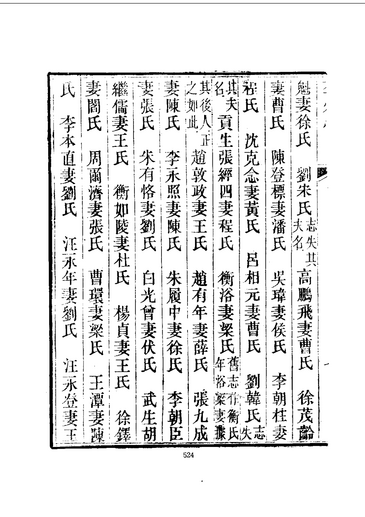 魁妻徐氏 劉朱氏志失其夫名 高鵬飛妻曹氏 徐茂齡
妻曹氏 陳登標妻潘氏 吳瑋妻侯氏 李朝柱妻
程氏 沈克念妻黃氏 呂相元妻曹氏 劉韓氏志失
其夫名 貢生張經四妻程氏 衡浴妻梁氏舊志作衡氏年裕梁妻據
其後人正之如此 趙敦政妻王氏 趙有年妻薛氏 張九成
妻陳氏 李永照妻陳氏 朱履中妻徐氏 李朝臣
妻張氏 朱有恪妻劉氏 白光曾妻伏氏 武生胡
繼儒妻王氏 衡如陵妻杜氏 楊貞妻王氏 徐鐸
妻閻氏 周爾濟妻張氏 曹環妻梁氏 王潭妻陳
氏 李本直妻劉氏 汪永年妻劉氏 汪永登妻王
524